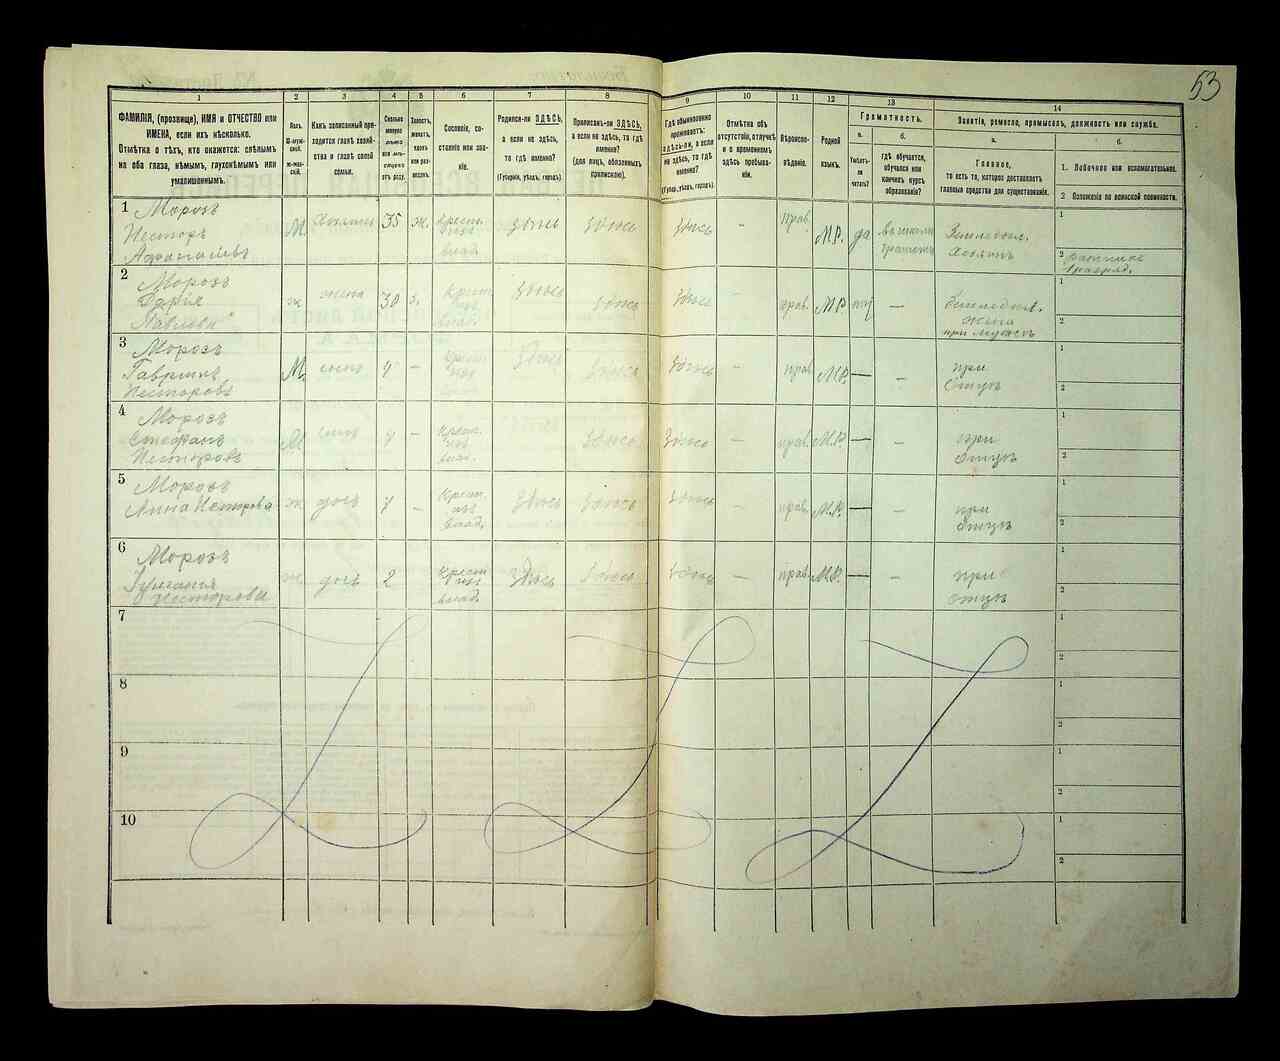 53
1
2
3
4
5
6
7
8
9
10
11
12
13
14
ФАМИЛІЯ, (прозвище), ИМЯ и ОТЧЕСТВО или
ИМЕНА, если ихъ нѣсколько.
Отмѣтка о тѣхъ, кто окажется: слѣпымъ
на оба глаза, нѣмымъ, глухонѣмымъ или
умалишеннымъ.
Полъ.
М-муж-
ской.
Ж-жен-
скій.
Какъ записанный при-
ходится главѣ хозяй-
ства и главѣ своей
семьи.
Сколько
минуло
лѣтъ
отъ роду.
Холостъ,
женатъ,
вдовъ
или раз-
веденъ.
Сословіе, со-
стояніе или зва-
ніе.
Родился-ли ЗДѢСЬ,
а если не здѣсь,
то гдѣ именно?
(Губернія, уѣздъ, городъ).
Приписанъ-ли ЗДѢСЬ,
а если не здѣсь, то гдѣ
именно?
(для лицъ, обязанныхъ
припискою).
Гдѣ обыкновенно
проживаетъ:
здѣсь-ли, а если
не здѣсь, то гдѣ
именно?
(Губер., уѣздъ, городъ).
Отмѣтка объ
отсутствіи, отлучкѣ
и о временномъ
здѣсь пребыва-
ніи.
Вѣроиспо-
вѣданіе.
Родной
языкъ.
Грамотность.
а.
б.
Умѣетъ-
ли
читать?
гдѣ обучается,
обучался или
кончилъ курсъ
образованія?
Занятіе, ремесло, промыселъ, должность или служба.
а.
б.
Главное,
то есть то, которое доставляетъ
главныя средства для существованія.
1. Побочное или вспомогательное.
2 Положеніе по воинской повинности.
1 Морозъ
Несторъ
Афанасіевъ
М. Хозяинъ 35 ж. Крест.
изъ
влад.
здѣсь здѣсь здѣсь - прав. М.Р. да
Земледѣл.
Хозяинъ
1
2 ратникъ
1 разряд.
2 Морозъ
Дарія
Павлова
ж жена 30 з. Крест
изъ
влад.
здѣсь здѣсь здѣсь - прав. М.Р. нѣт —
Земледѣл.
Жена
при мужѣ
1
2
3 Морозъ
Гавріилъ
Несторовъ
М. сынъ 9 - Крест
изъ
здѣсь здѣсь здѣсь прав М.Р. — -
при
Отцѣ
1
2
4 Морозъ
Стефанъ
Несторовъ
М сынъ 9 - Крест.
изъ
влад.
здѣсь здѣсь - прав. М.Р. — -
при
Отцѣ
1
2
5 Морозъ
Анна Несторова
ж дочь 7 - Крест
изъ
влад.
здѣсь здѣсь здѣсь - прав. М.Р. — -
при
Отцѣ
1
2
6 Морозъ
Несторова
ж дочь 2 Крест
изъ
влад.
здѣсь здѣсь здѣсь - прав. М.Р. — -
при
отцѣ
1
2
7
1
2
8
1
2
9
1
2
10
1
2